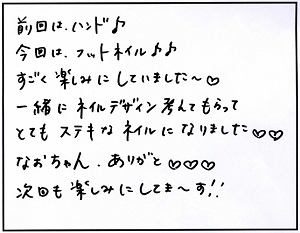 前回は、ハンド♪
今回は、フットネイル♪♪
すごく楽しみにしていました〜♡
一緒にネイルデザイン考えてもらって
とてもステキなネイルになりました♡♡
なおちゃん、ありがと♡♡♡
次回も楽しみにしてま〜す!!